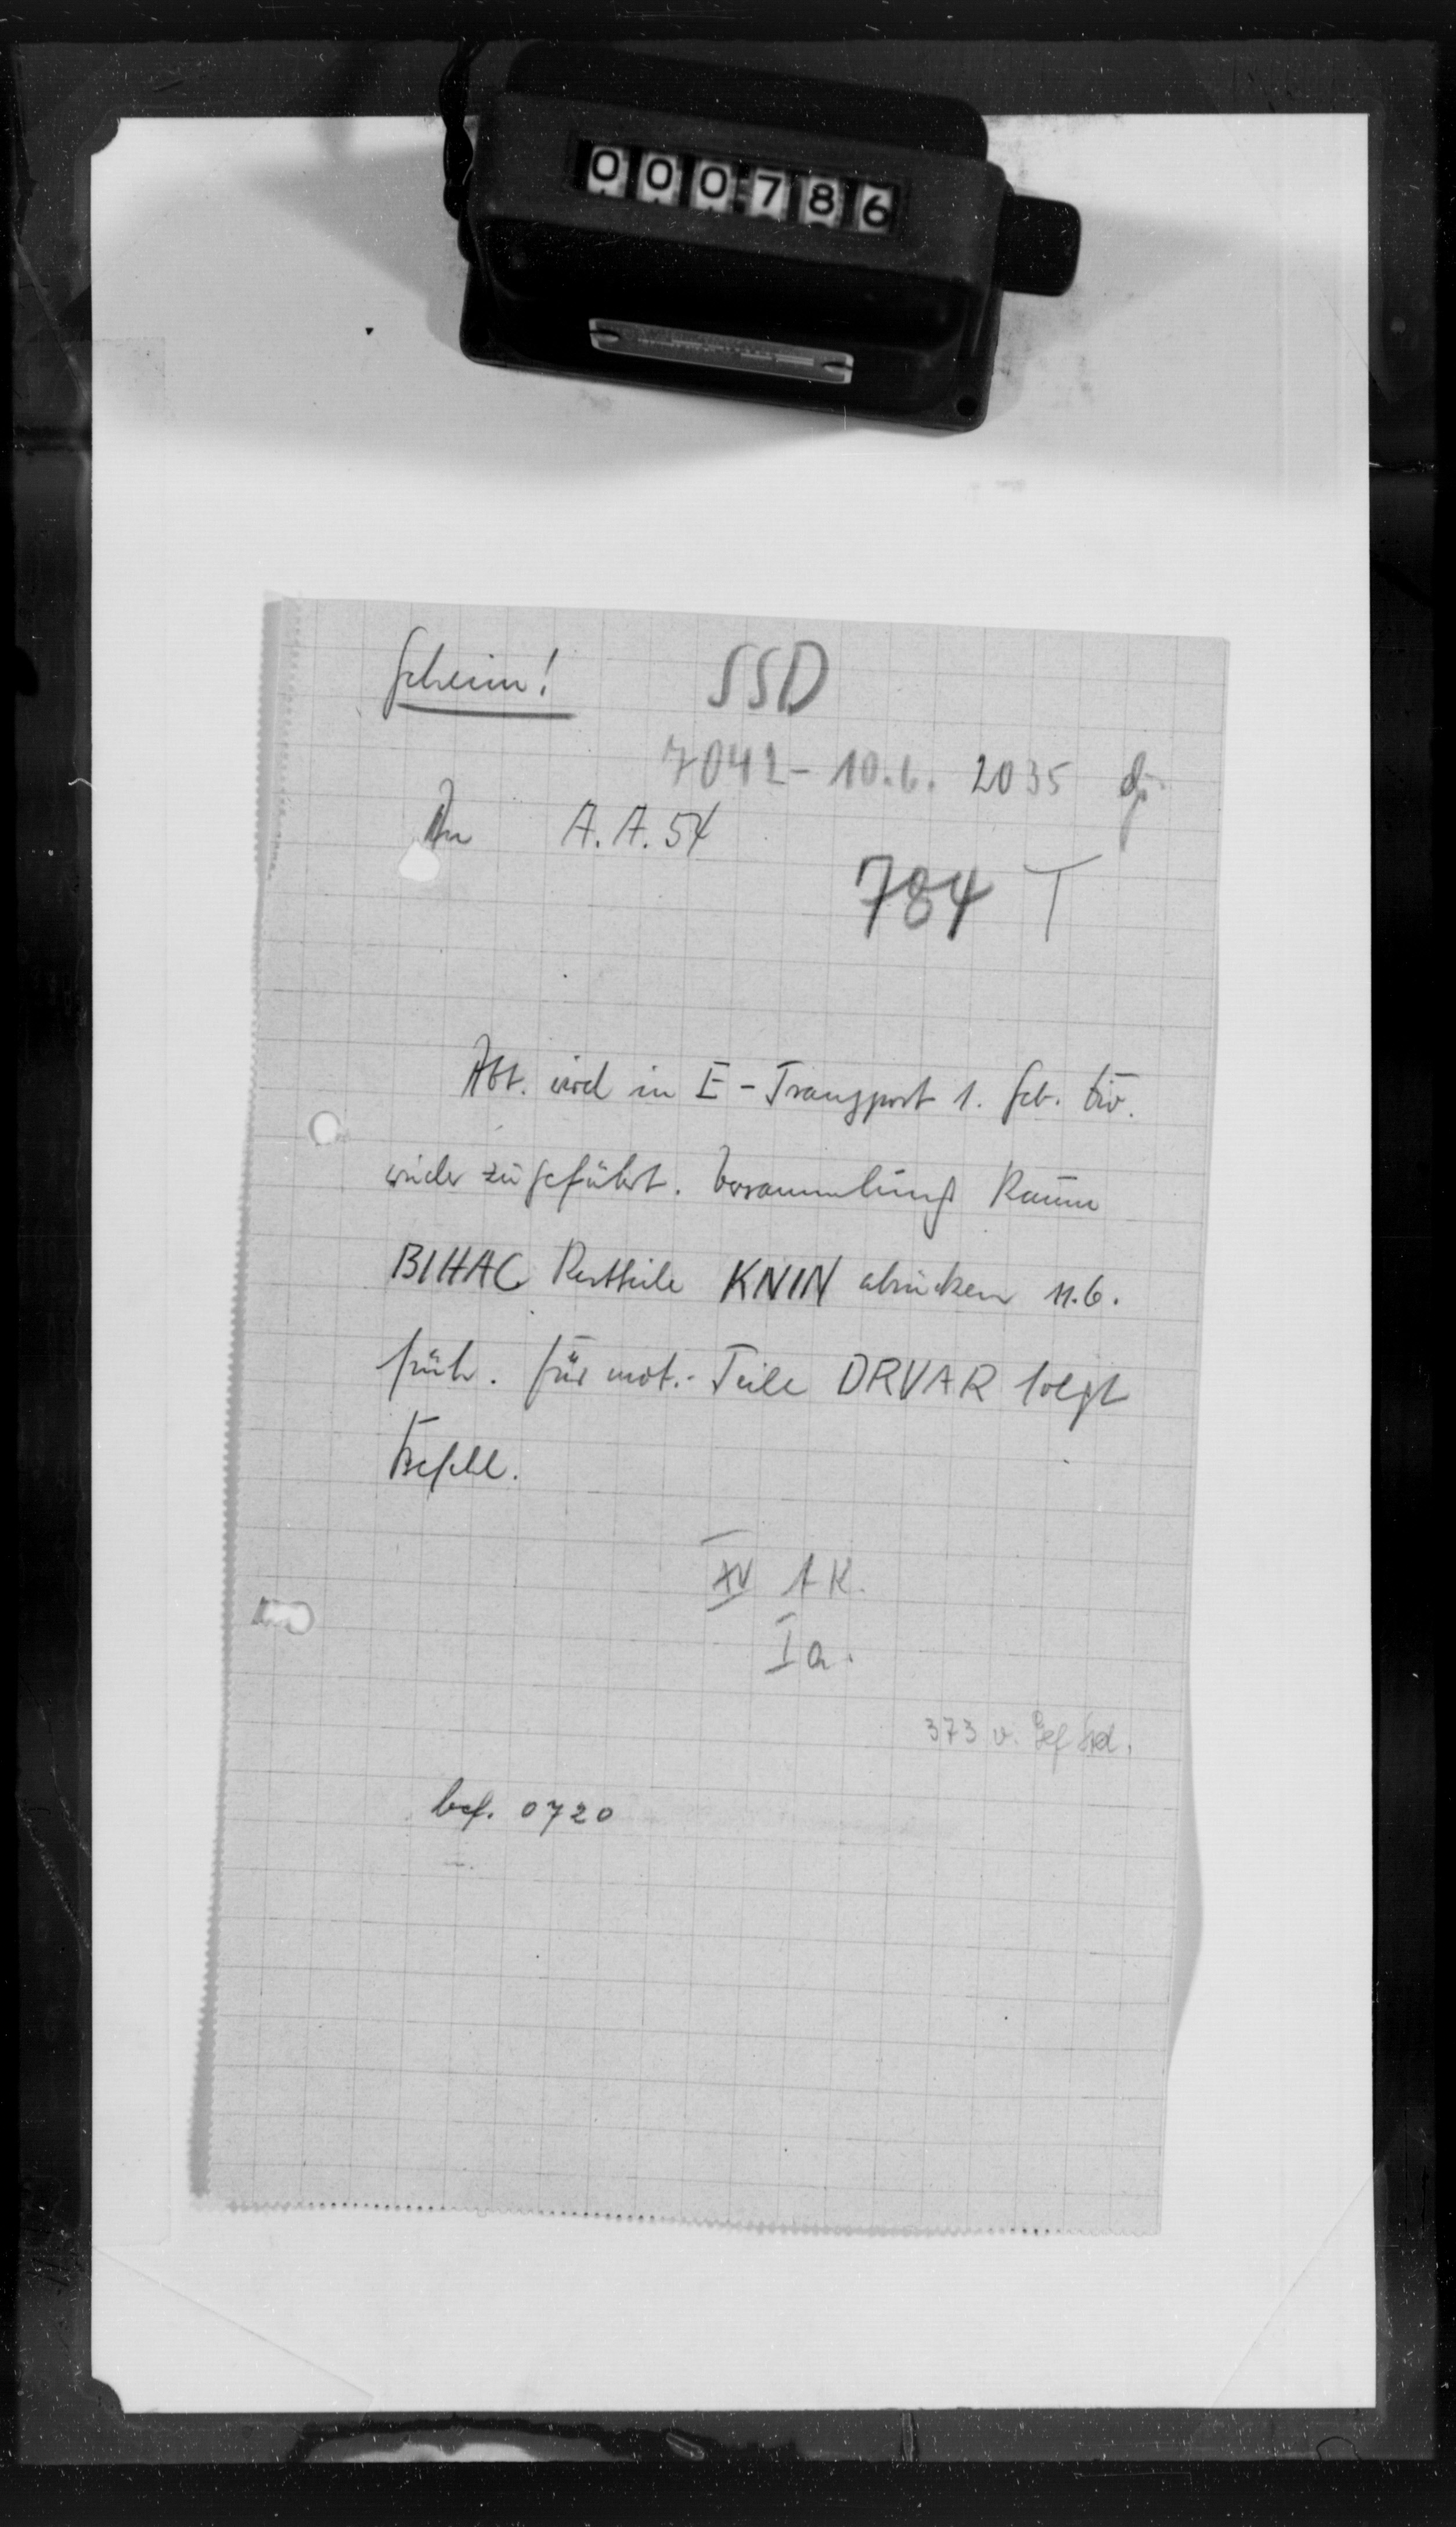 000786
Geheim! SSD
7042 - 10.6. 2035
An A.A. 54
784 T
Abt. wird in E-Transport 1. Geb. Div.
wieder zugeführt. Versammlung Raum
BIHAC Restteile KNIN abrücken 11.6.
früh. Für mot.-Teile DRVAR folgt
Befehl.
XV A K.
Ia.
373 v.
bef. 0720